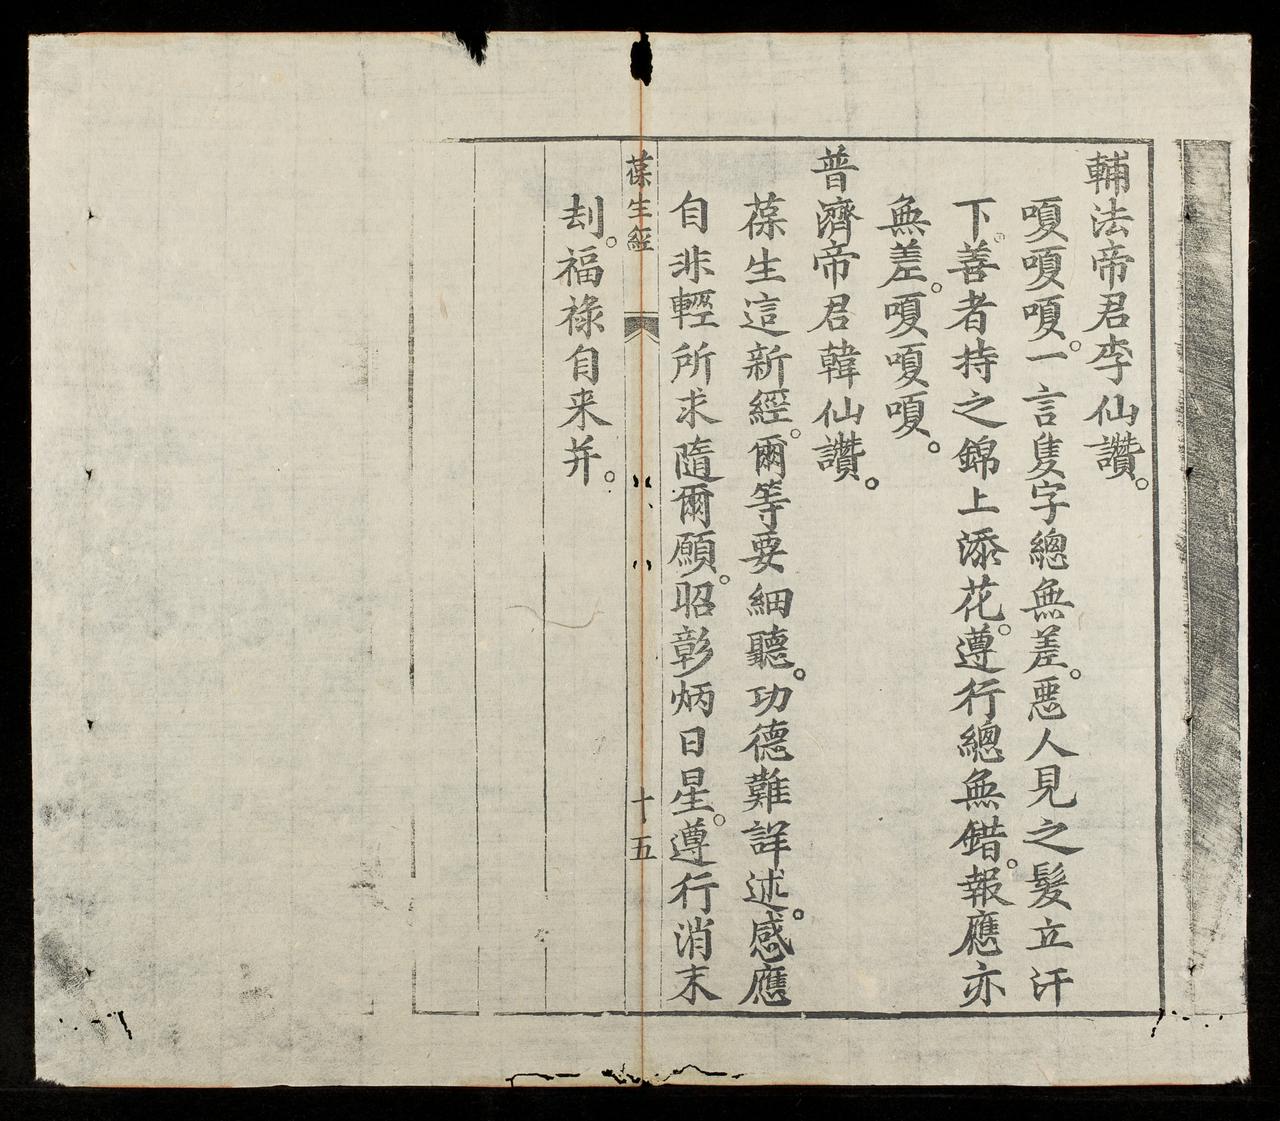 輔法帝君李仙讚。
嗄嗄嗄。一言隻字總無差。惡人見之髮立汗
下。善者持之錦上添花。遵行總無錯。報應亦
無差。嗄嗄嗄。
普濟帝君韓仙讚。
葆生這新經。爾等要細聽。功德難詳述。感應
自非輕所求隨爾願。昭彰炳日星。遵行消末
刦。福祿自来并。
葆生經
十五